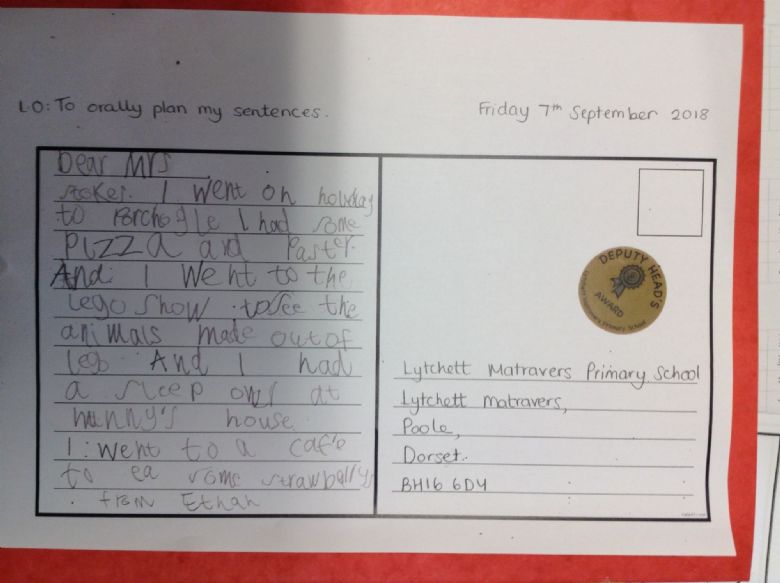 LO: To orally plan my sentences.
Friday 7th September 2018
Dear Mrs
stoker. I went on holiday
to Porchogle I had some
PIZZA and Paster.
And I went to the
Lego show to see the
animals made out of
lego And I had
a sleep over at
nanny's house
I went to a cafe
to ea some strawballys
from Ethan
DEPUTY HEAD'S
AWARD
Lytchett Matravers Primary School
Lytchett matravers,
Poole,
Dorset.
BH16 6DY